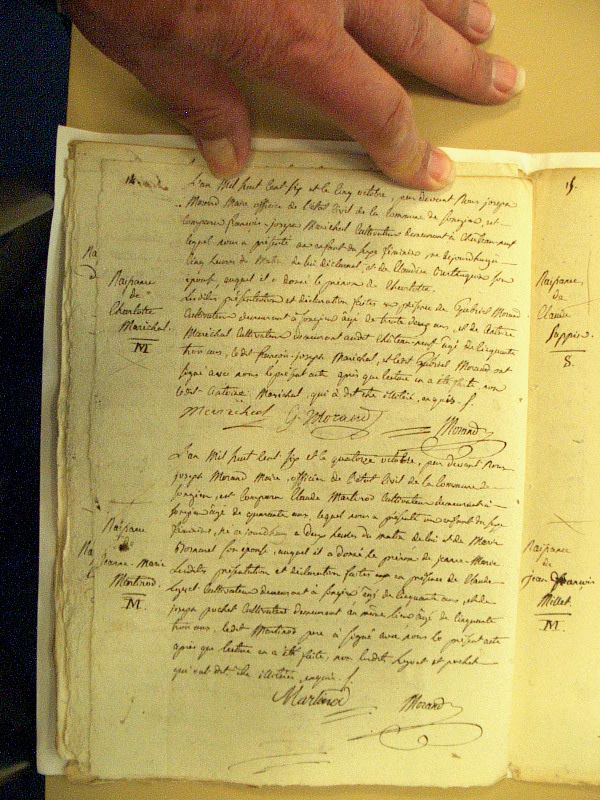 14.
Naissance
de
Charlotte
Marechal.
M
L'an Mil huit Cent six et le Cinq octobre, par devant Nous joseph
Morand Maire officier de l'état Civil de la Commune de et
comparu françois-joseph Marechal Cultivateur demeurant à Chateauneuf
lequel nous a présenté un enfant du sexe féminin, né aujourdhuy
Cinq heures du Matin de lui déclarant, et de Claudine son
épouse, auquel il a donné le prénom de Charlotte.
Lesdites présentation et déclaration faites en présence de Gabriel Morand
Cultivateur demeurant à âgé de trente ans, et de Antoine
Marechal Cultivateur demeurant audit Chateauneuf âgé de Cinquante
trois ans, ledit françois-joseph Marechal, et ledit Gabriel Morand ont
signé avec nous le présent acte après que lecture en a été faite, non
ledit Antoine Marechal, qui a dit être illitéré, enquis.
Marechal G. Morand Morand
Naissance
de
Jeanne-Marie
Martinod.
M.
L'an Mil huit Cent six et le quatorze octobre, par devant Nous
joseph Morand Maire, officier de l'état Civil de la Commune de
est comparu Claude Martinod Cultivateur demeurant à
âgé de quarante ans, lequel nous a présenté un enfant du sexe
féminin, né aujourdhuy à deux heures du matin de lui et de Marie
son épouse, auquel il a donné le prénom de Jeanne-Marie
Lesdites présentation et déclaration faites en présence de Claude
Cultivateur demeurant à âgé de Cinquante ans, et de
joseph pochet Cultivateur demeurant au même lieu âgé de Cinquante
trois ans, ledit Martinod père a signé avec nous le présent acte
après que lecture en a été faite, non lesdits et pochet
qui ont dit être illitérés, enquis.
Martinod Morand
15.
Naissance
de
Claude
S.
Naissance
de
Jean françois
Millet
M.